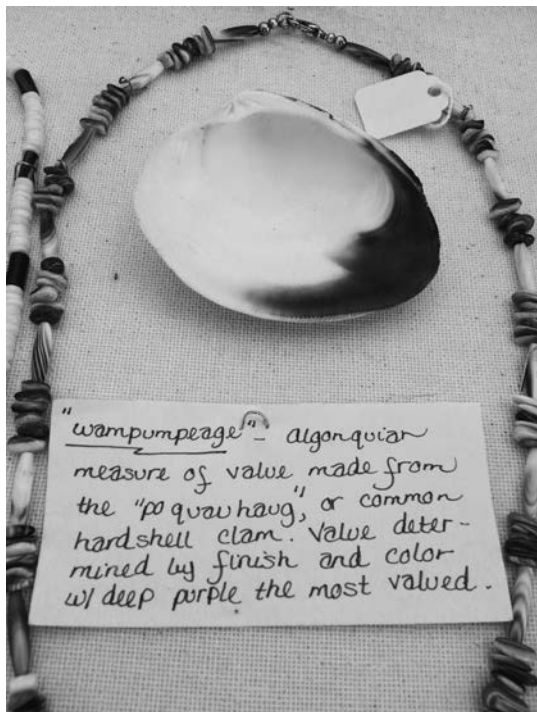 "wampumpeage" – algonquian
measure of value made from
the "poquauhaug", or common
hardshell clam. Value deter-
mined by finish and color
w/ deep purple the most valued.